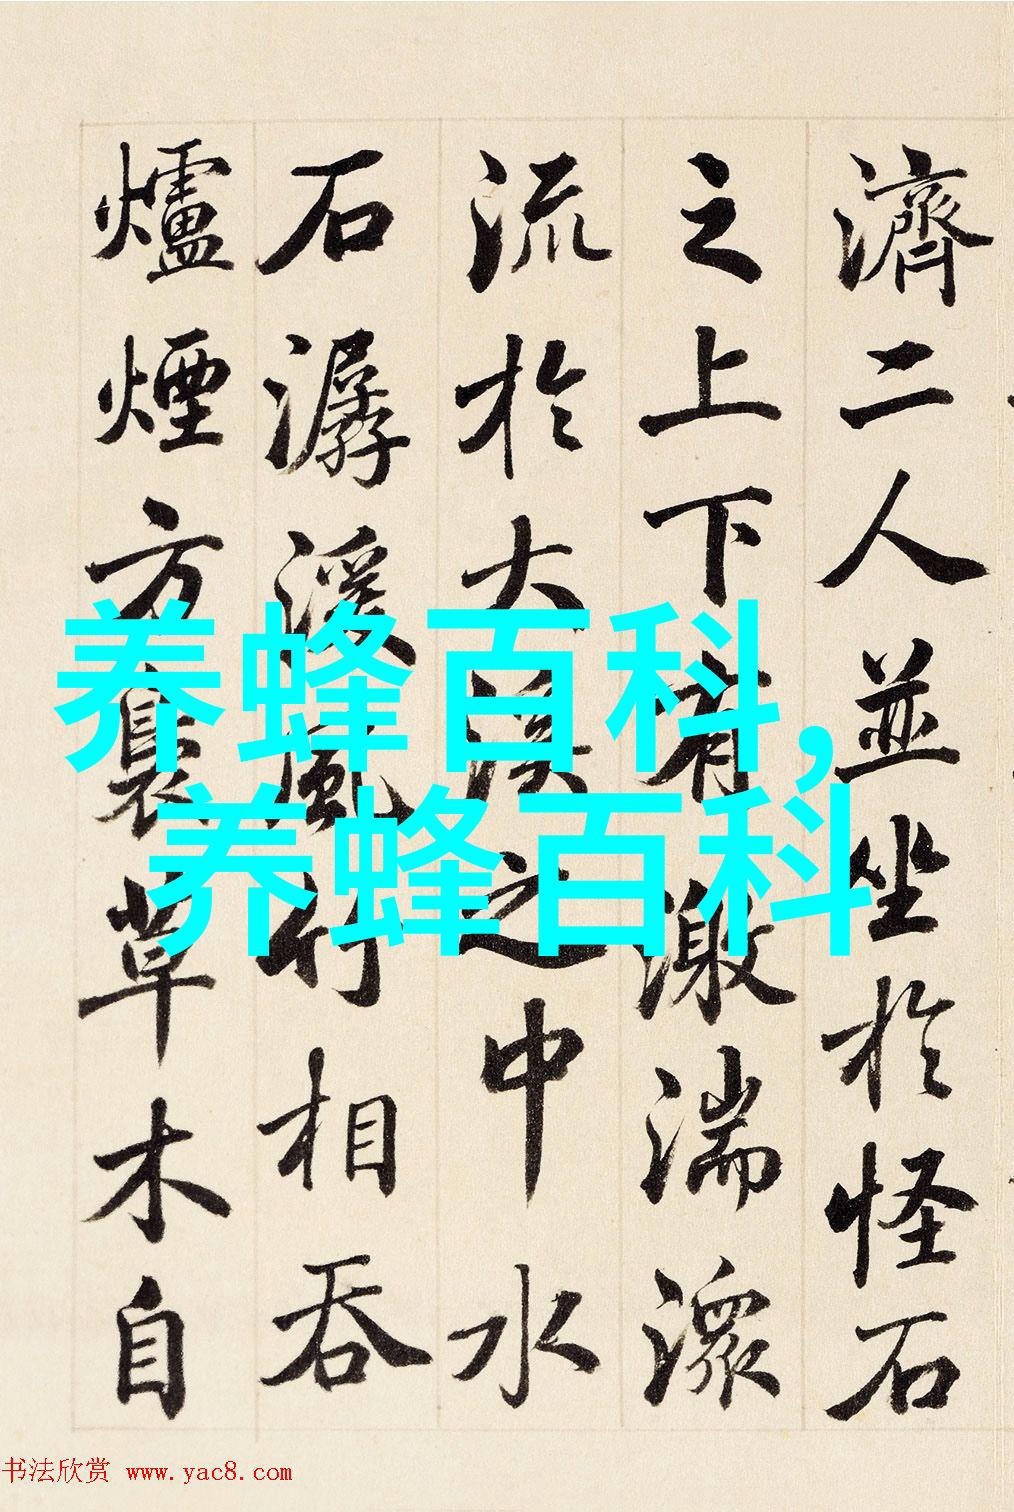 濟二人並坐於怪石
之上下有激湍潨
流於大溪之中水
石潺湲風竹相吞
爐煙方裊草木自
养蜂百科,
养蜂百科
书法欣赏 www.yac8.com